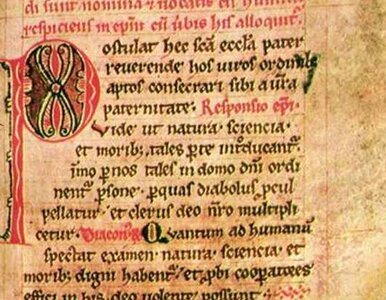 di sunt nomina & uocatis eū humili
respiciens in epm̄ cū urbis his alloquit̄.
Postulat hec scā ecctā pater
reuerende hos uiros ordinib;
aptos consecrari sibi a ura
paternitate. Responsio epi.
Vide ut natura. sciencia.
et morib; tales p te int̄ducant̄.
immo p nos tales in domo dn̄i ordi
nent̄ psone. p quas diabolus pcul
pellatur. et clerus deo nr̄o multipli
cetur. Diacon;. Quantum ad humanū
spectat examen. natura. sciencia. et
morib; digni habent̄. et pbi coopatores
effici in his deo uolente possunt.